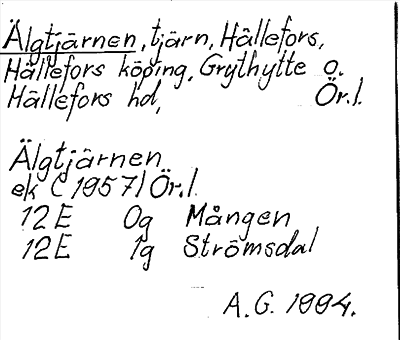 Älgtjärnen, tjärn, Hällefors,
Hällefors köping, Grythytte o.
Hällefors hd, Ör.l.
Älgtjärnen
ek C 1957 Ör.l.
12E 0g Mången
12E 1g Strömsdal
A.G. 1994.